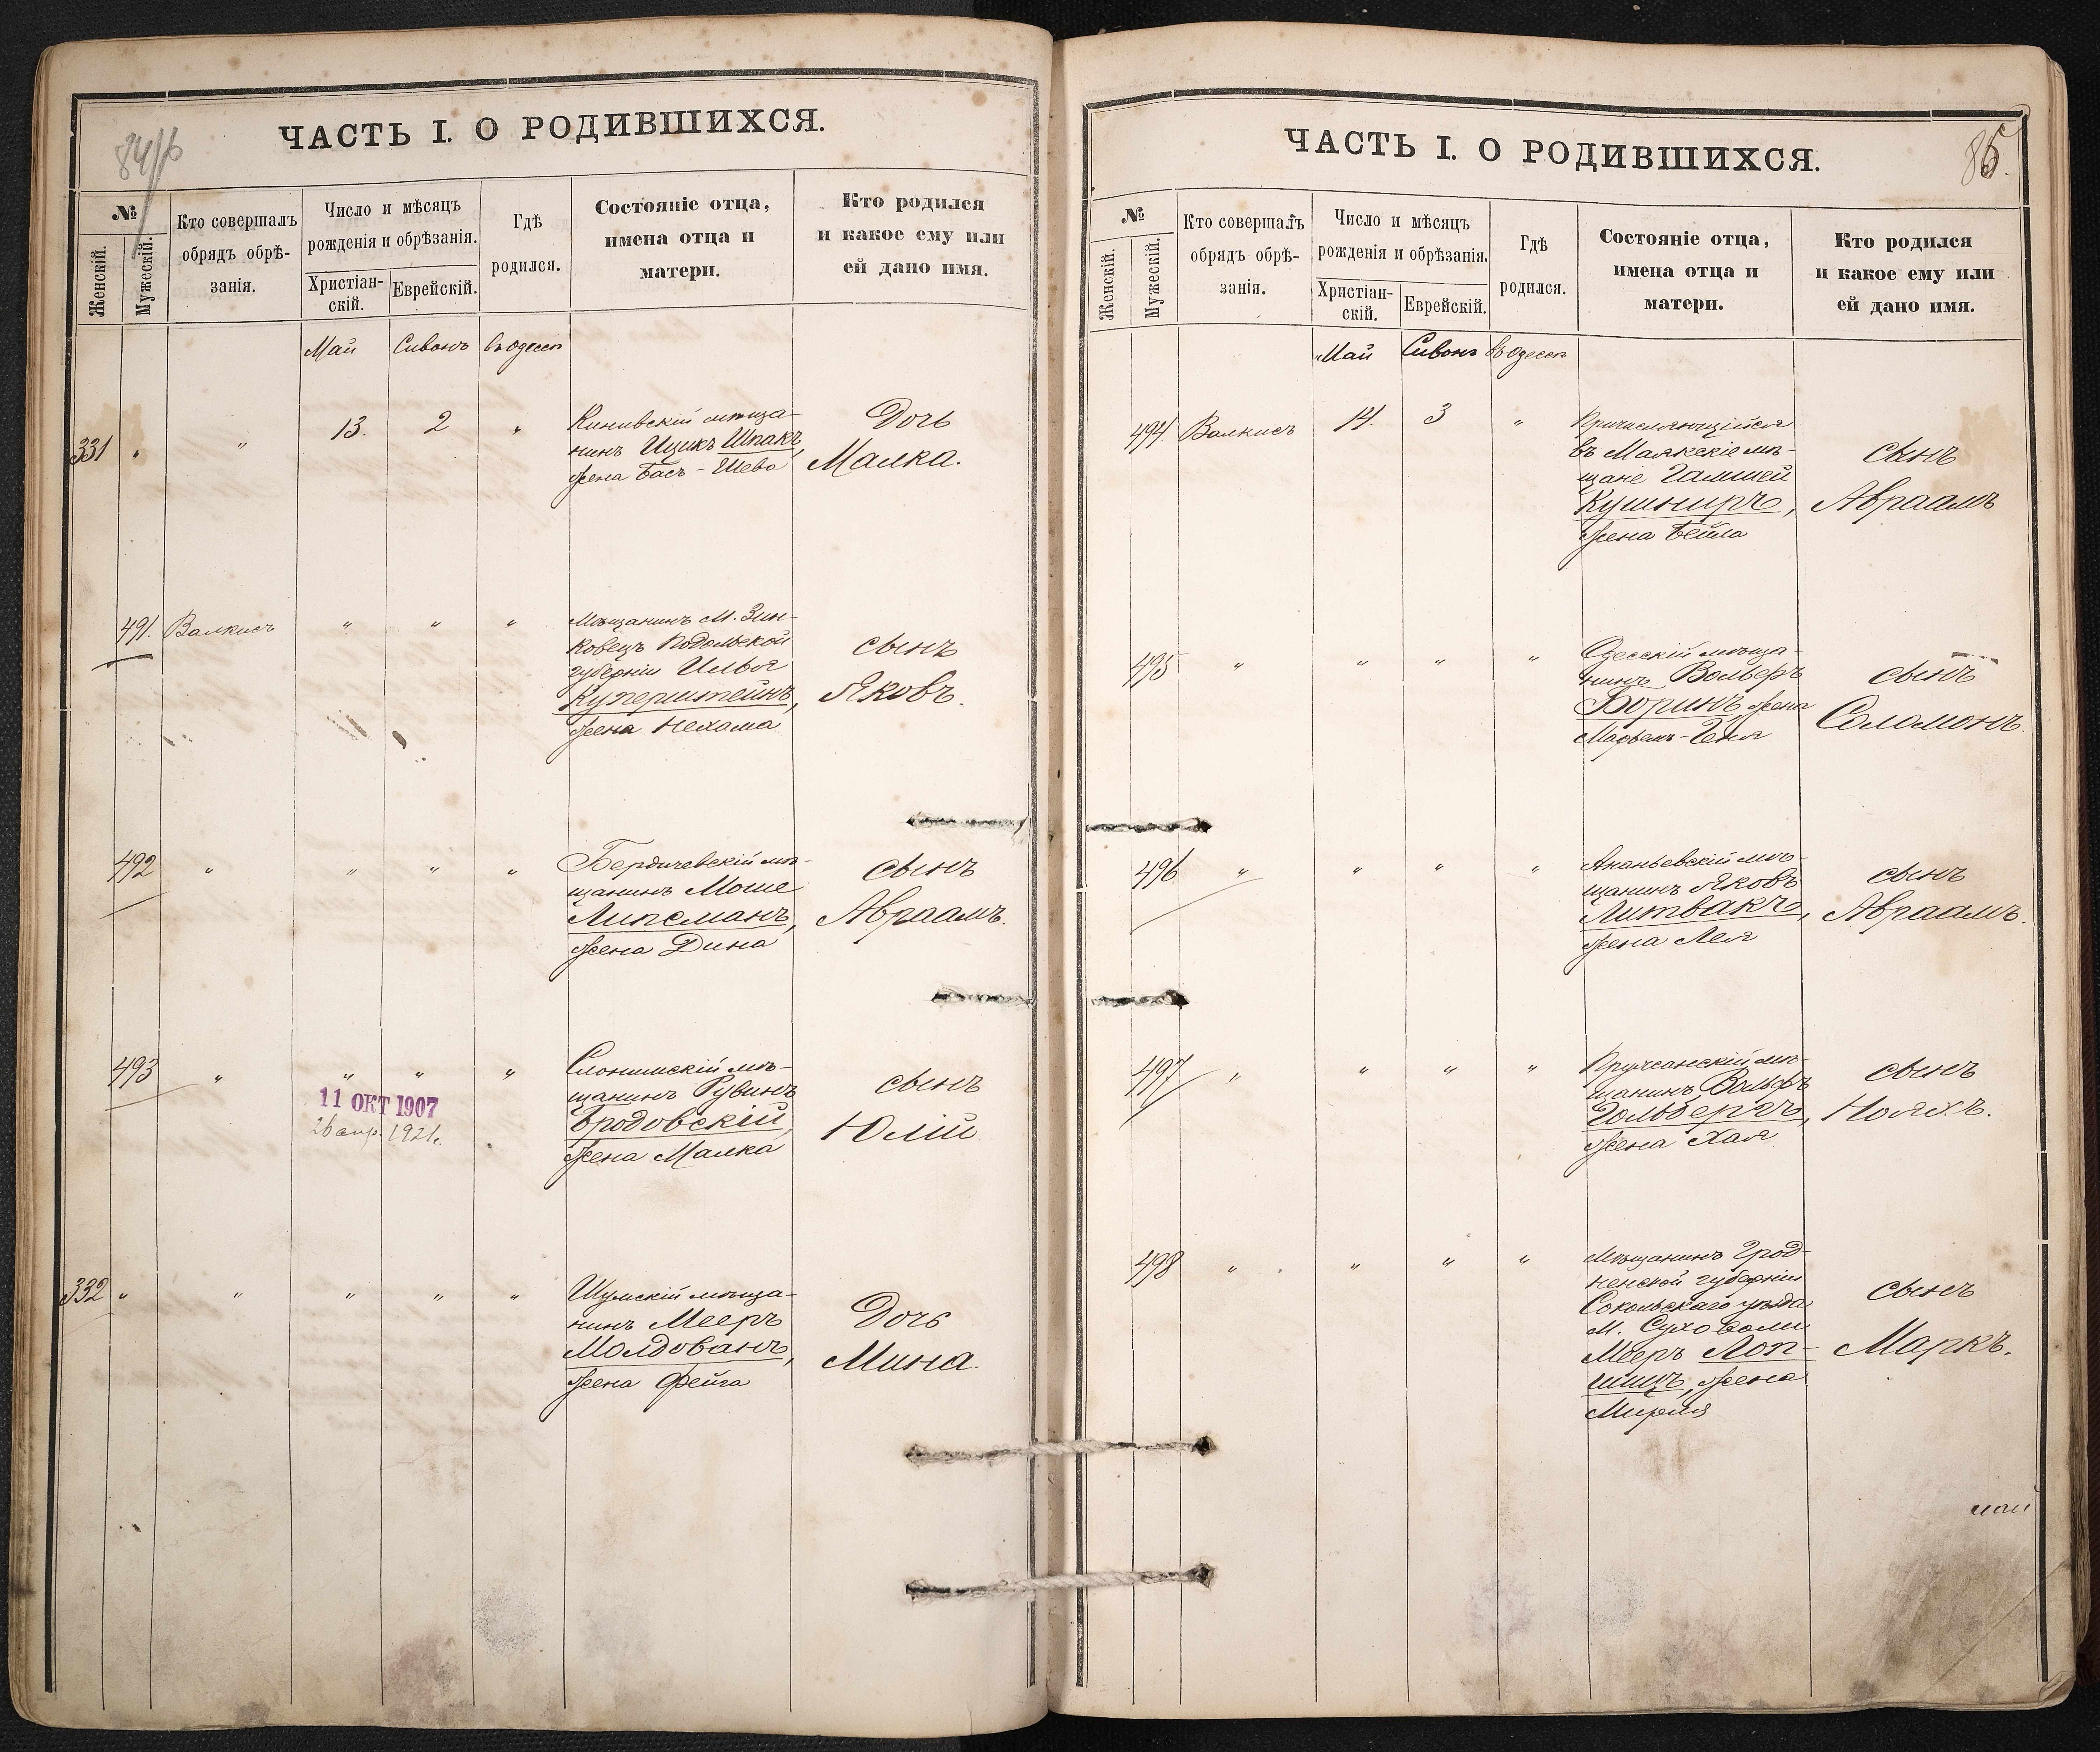 84/16
ЧАСТЬ I. О РОДИВШИХСЯ.
№
Женскій.
Мужескій.
Кто совершалъ
обрядъ обрѣ-
занія.
Число и мѣсяцъ
рожденія и обрѣзанія.
Христіан-
скій.
Еврейскій.
Гдѣ
родился.
Состояніе отца,
имена отца и
матери.
Кто родился
и какое ему или
ей дано имя.
Май Сивонъ въ Одессѣ
331 " " 13. 2 "
мѣща-
нинъ Ицикъ Шпакъ,
жена Бась-Шева
Дочь
Малка.
491. Валкисъ " " "
Мѣщанинъ М. Зин-
ковецъ Подольской
губерніи Илья
Куперштейнъ,
жена Нехама
сынъ
Яковъ.
492 " " " "
Бердичевскій мѣ-
щанинъ Моше
Липсманъ,
жена Дина
сынъ
Авраамъ.
493 " " " "
11 ОКТ 1907
26 апр. 1921г.
Слонимскій мѣ-
щанинъ Рувинъ
Бродовскій,
жена Малка
сынъ
Юлій.
332 " " " " "
Шумскій мѣща-
нинъ Мееръ
Молдованъ,
жена Фейга
Дочь
Мина.
85.
ЧАСТЬ I. О РОДИВШИХСЯ.
№
Женскій.
Мужескій.
Кто совершалъ
обрядъ обрѣ-
занія.
Число и мѣсяцъ
рожденія и обрѣзанія.
Христіан-
скій.
Еврейскій.
Гдѣ
родился.
Состояніе отца,
имена отца и
матери.
Кто родился
и какое ему или
ей дано имя.
Май Сивонъ въ Одессѣ
494. Валкисъ 14. 3 "
Причисляющійся
въ Маякскіе мѣ-
щане
Кушниръ,
жена Бейла
сынъ
Авраамъ
495 " " " "
Одесскій мѣща-
нинъ Вольфъ
Боринъ жена
Марьемъ-Геня
сынъ
Соломонъ.
496 " " " "
Ананьевскій мѣ-
щанинъ Яковъ
Литвакъ,
жена Лея
сынъ
Авраамъ.
497 " " " "
мѣ-
щанинъ Вольфъ
Гольбергъ,
жена Хая
сынъ
Нояхъ.
498 " " " "
Мѣщанинъ Грод-
ненской губерніи
Сокольскаго уѣзда
М. Суховоли
Мееръ Лоп-
жена
Мирля
сынъ
Маркъ.
май